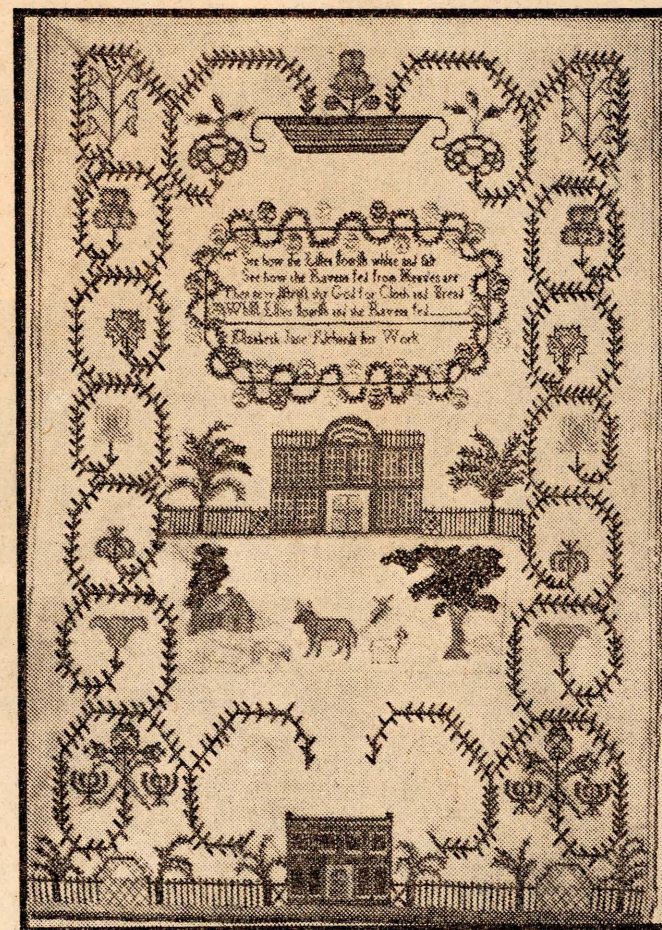 See how the Lilies flourish white and fair
See how the Ravens fed from Heaven are
never distrust thy God for Cloth and Bread
Whilst Lilies flourish and the Ravens fed
Elizabeth Jane Richards her Work